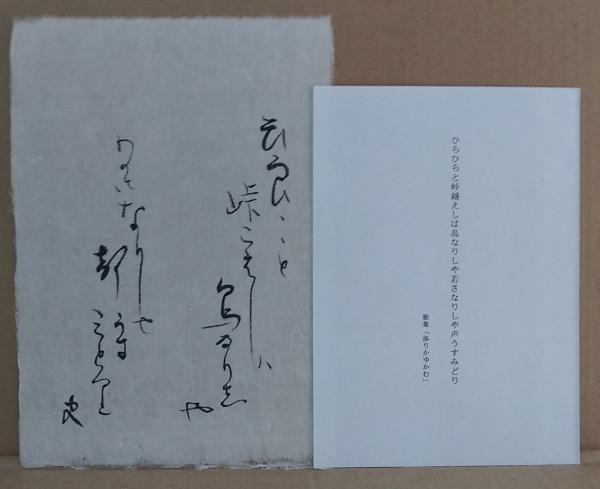 ひらひらと
峠こえしハ
鳥なりし
や
わかさなりしや
声うす
みとり
史
ひらひらと峠越えしは鳥なりしや若さなりしや声うすみどり
歌集「渉りかゆかむ」